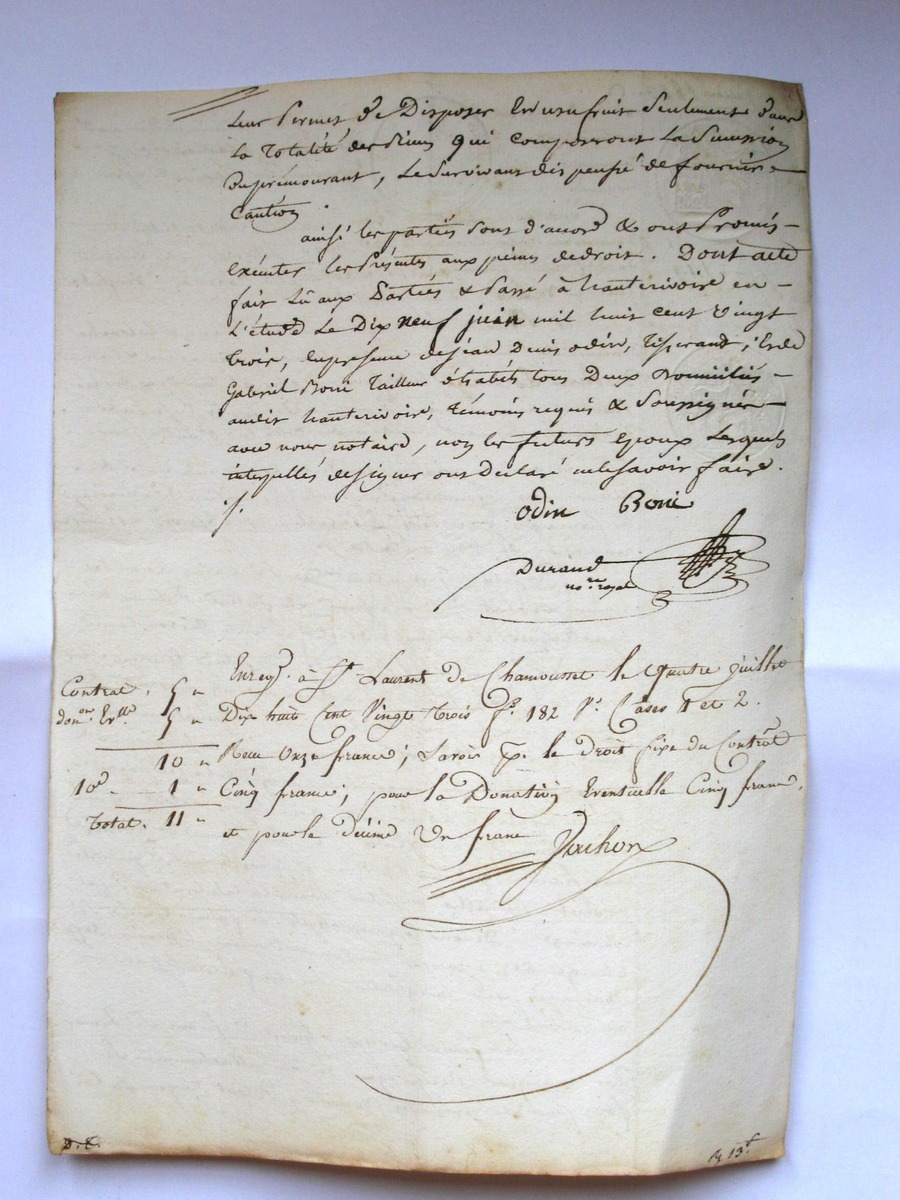 leur permet de Disposer en usufruit Seulement dans
la Totalité des Biens qui composeront La Succession
Du prémourant, le Survivant dispensé de fournir
Caution.
ainsi les partiés Sont d'accord & ont Promis
exécuter les Présentes aux peines de droit. Dont acte
fait Lû aux Partiés & Passé à hauterivoire en
L'étude Le Dix neuf juin mil huit cent vingt
trois, en présence de Jean Denis odin, Tisserand, &de
Gabriel Boni Tailleur d'habits tous Deux Domiciliés
audit hauterivoire, témoins requis & Soussignés
avec nous notaire, non les futurs époux Lesquels
interpellés de signer ont Déclaré ne le savoir faire.
./.
odin Boni
Durand
no.re royal
Enreg. à St Laurent de Chamousset le quatre juillet
Dix huit Cent Vingt trois fo. 182 Vo. Cases 1 et 2.
Reçu Onze francs; Savoir pr. le droit fixe du Contrat
Cinq francs; pour la Donation Eventuelle Cinq francs,
et pour le décime Un franc
Contrat. 5 "
don.on Ev.lle 5 "
10 "
10e. 1 "
Total. 11 "
D.E.
13.f